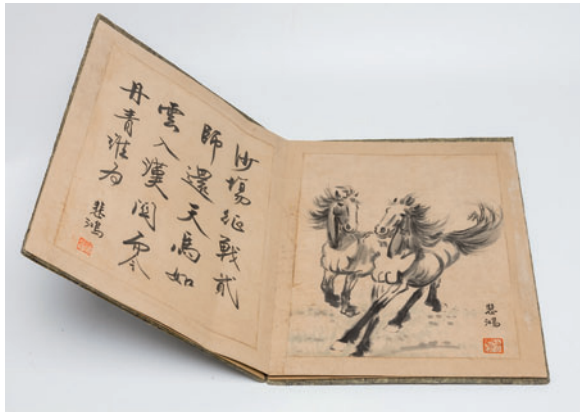 沙場征戰貳
師還天馬如
雲入漢関零
丹青誰為
悲鴻
悲鴻